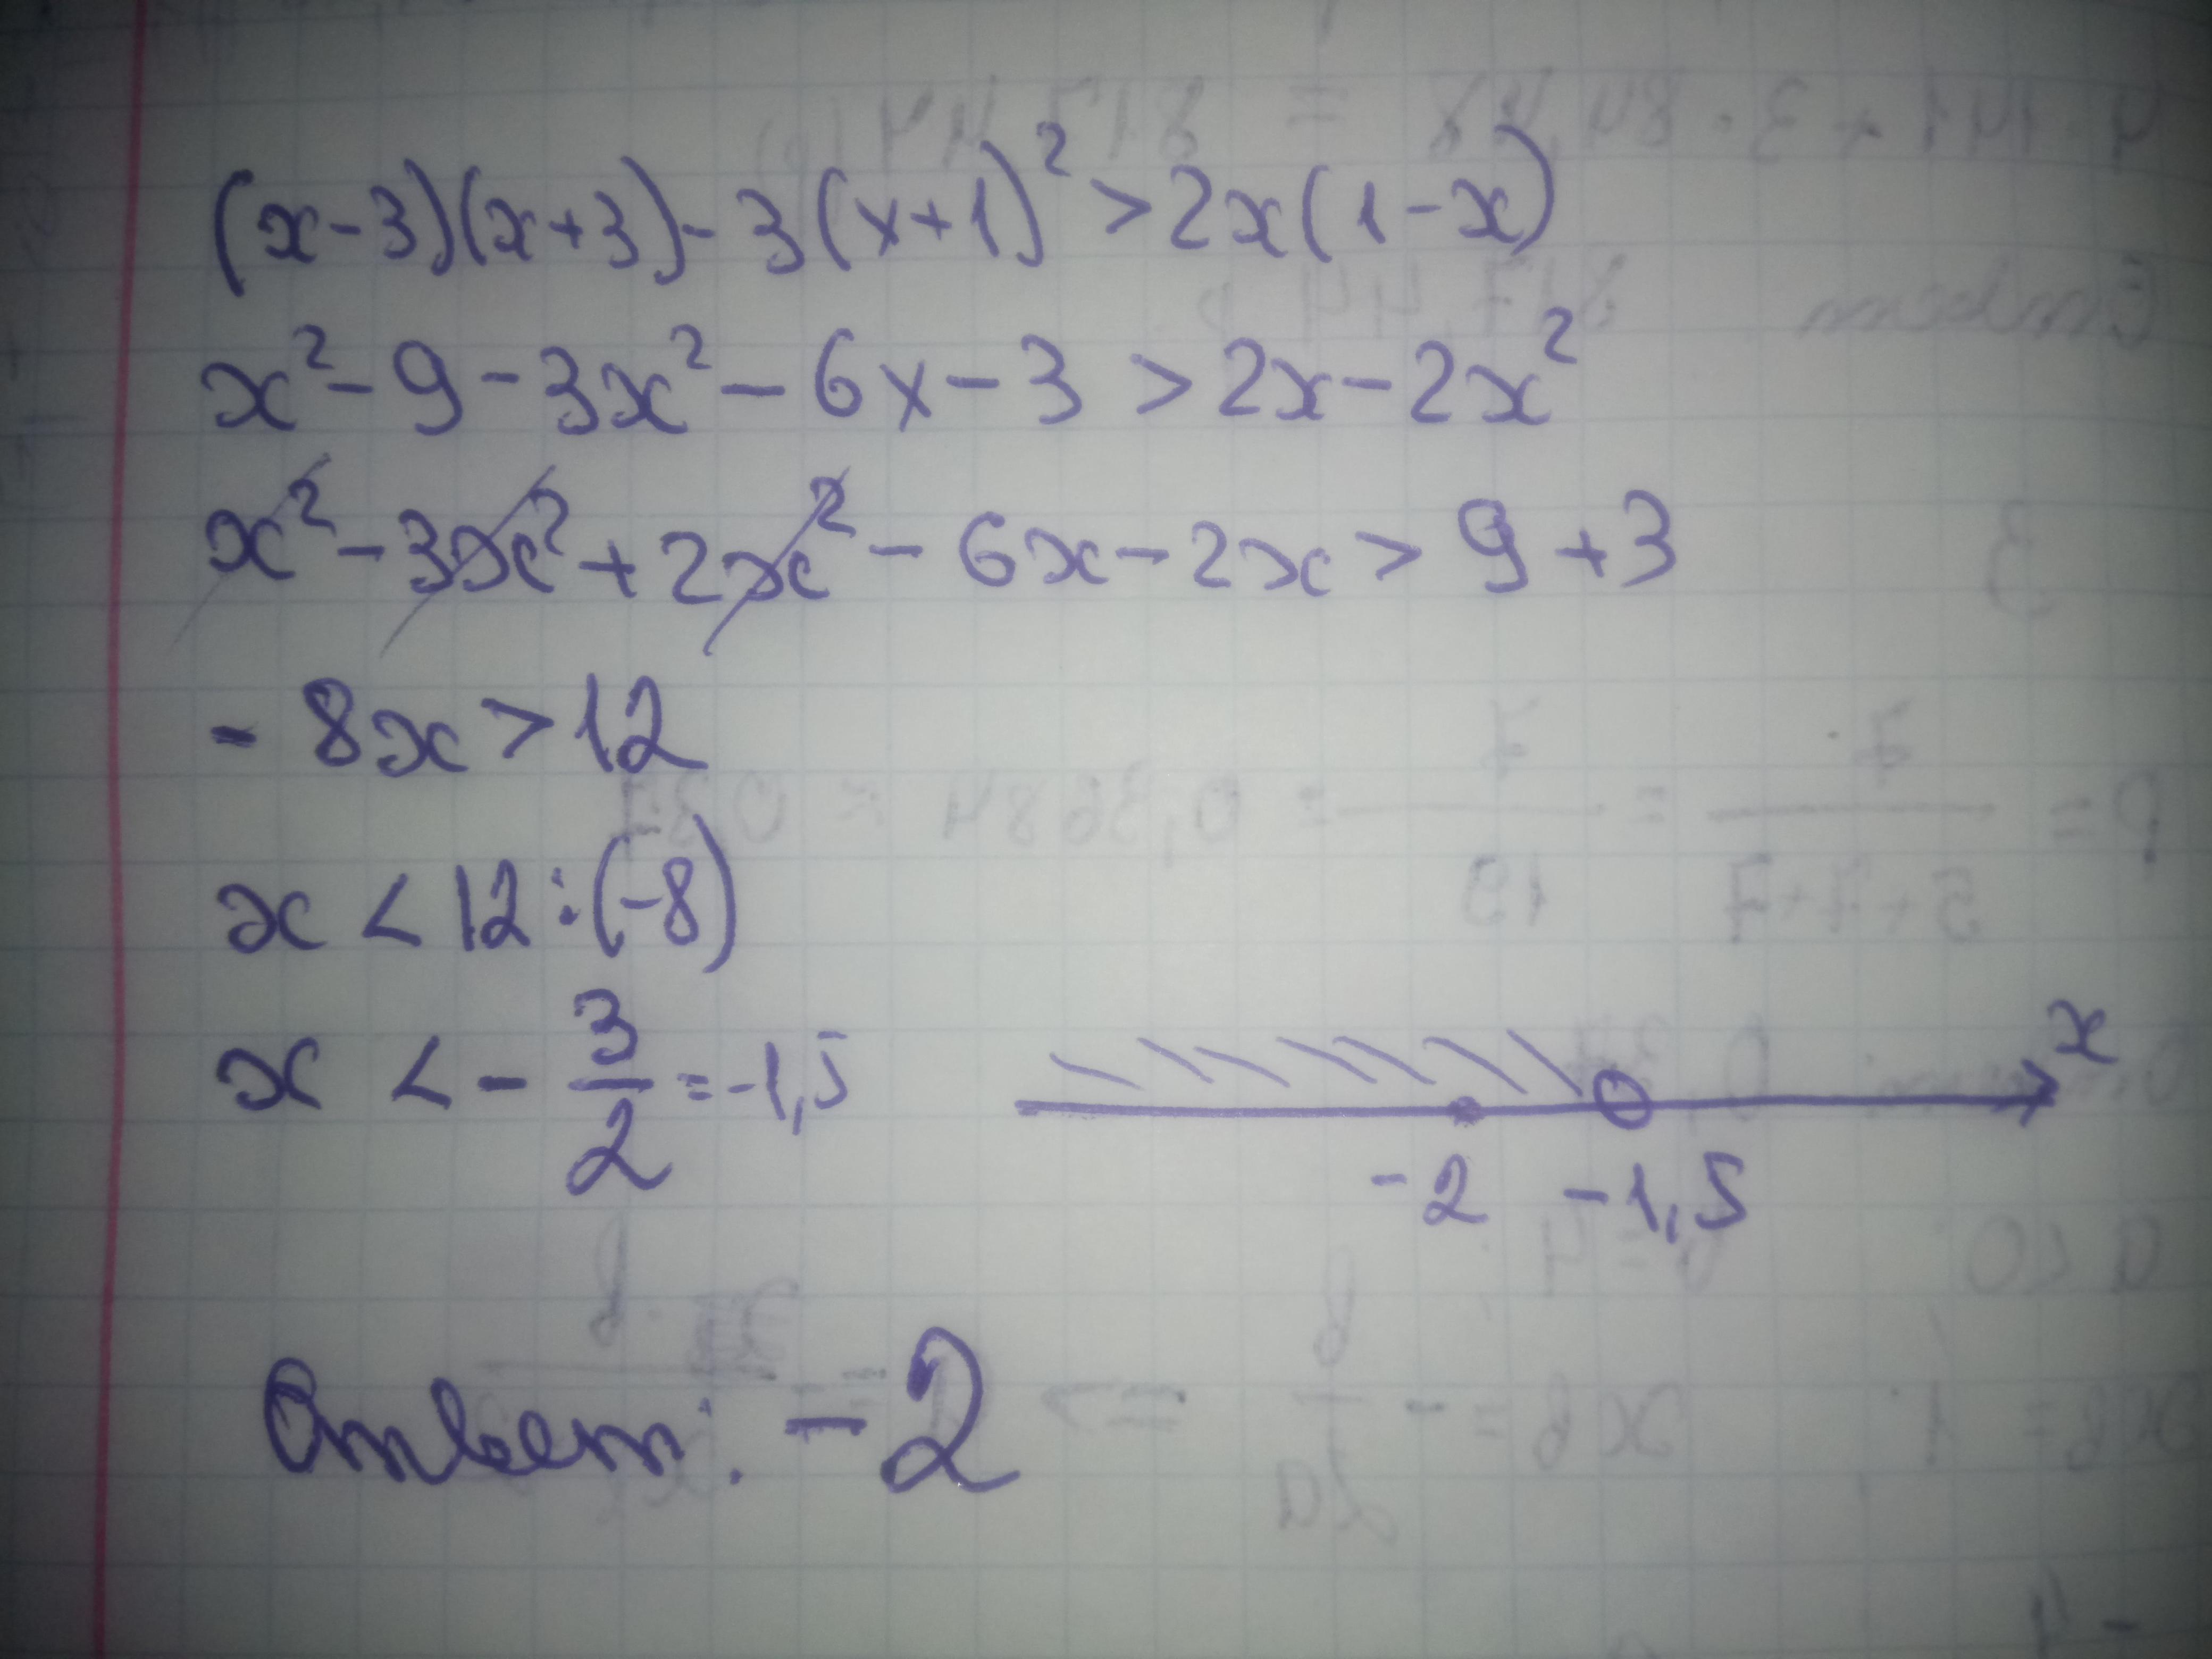 (x-3)(x+3)-3(x+1)²>2x(1-x)
x²-9-3x²-6x-3>2x-2x²
x²-3x²+2x²-6x-2x>9+3
-8x>12
x<12:(-8)
x<-3/2=-1,5
x
-2 -1,5
Ответ: -2